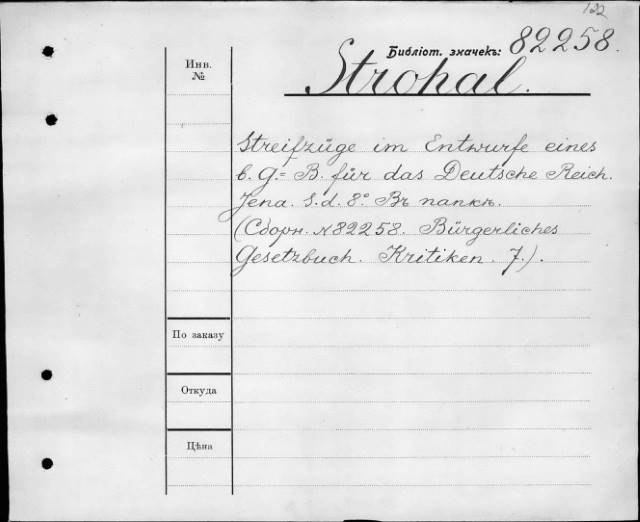 122
Библіот. значекъ: 82258.
Инв.
№
Strohal.
Streifzüge im Entwurfe eines
b. G.= B. für das Deutsche Reich.
Jena. S. d. 8° Въ папкѣ.
(Сборн. № 82258. Bürgerliches
Gesetzbuch. Kritiken. 7.).
По заказу
Откуда
Цѣна